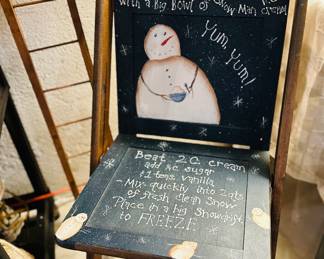 with a Big Bowl of Snow Man cream
Yum, Yum!
Beat 2 C cream
add ½ sugar
+1 teas. vanilla
Mix quickly into 2 qts
of fresh clean Snow
Place in a big Snowdrift
to FREEZE